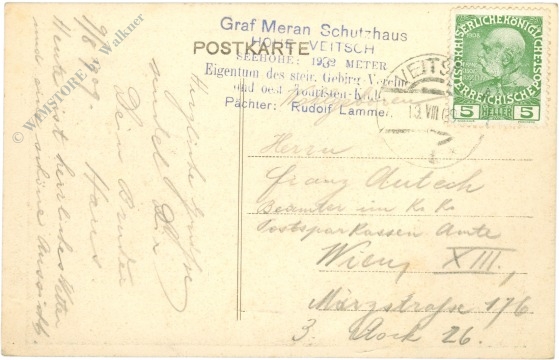 Graf Meran Schutzhaus
HOHE VEITSCH
POSTKARTE
SEEHÖHE: 1982 METER
Eigentum des steir. Gebirg-Vereins
und oest. Touristen-Klub
Pächter: Rudolf Lammer
KAISERLICHE KÖNIGLICHE
ÖSTERREICHISCHE POST
1848 1908
5 HELLER 5
VEITSCH
13 VIII 09
Herrn
Franz
Beamter im K. K.
Postsparkassen Amte
Wien, XIII,
Märzstrasse 176
3. Stock 26.
Herzliche Grüße
sendet Dir
Dein Bruder
Hans.
Heute ist herrliches Wetter
und eine schöne Aussicht.
© WIMSTORE / Walkner